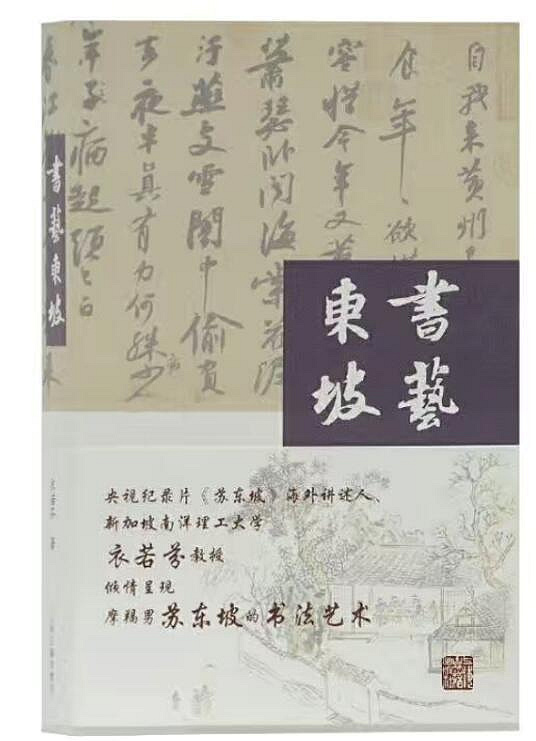 自我來黃州
食年〻欲
容惜今年又苦
蕭瑟臥聞海棠花泥
汙燕支雪闇中偷負
去夜半真有力何殊少
病
年子病起頭已白
春江
書藝東坡
衣若芬 著
書藝
東坡
央视纪录片《苏东坡》海外讲述人、
新加坡南洋理工大学
衣若芬教授
倾情呈现
摩羯男苏东坡的书法艺术